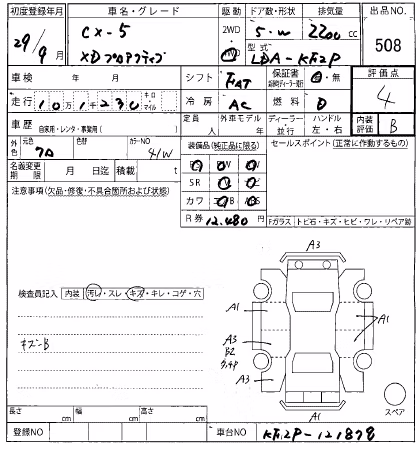 初度登録年月 車名・グレード 駆動 ドア数・形状 排気量 出品No.
29/9月 CX-5 XDプロアクティブ 2WD 4WD 5・W 2200 cc 508
型式 LDA-KF2P
車検 年 月 シフト FAT 保証書 有・無 評価点 4
走行 10万1千230 キロ マイル 冷房 AC 燃料 D
車歴 自家用・レンタ・事業用( ) 定員 人 外車モデル 年 ディーラー・並行 ハンドル 左・右 内装評価 B
外色 元色 色部 カラーNO 41W
装備品(純正品に限る) セールスポイント(正常に作動するもの)
名義変更期限 月 日迄 積載 t
SR AW
カワ
R券 12,480円
注意事項(欠品・修復・不具合箇所および状態)
Fガラス トビ石・キズ・ヒビ・ワレ・リペア跡
A3
検査員記入 内装 汚レ・スレ・キズ・キレ・コゲ・穴
A1 A1
キズ=B
A3
B2
A3
スペア
A1
長さ cm 幅 cm 高さ cm
登録NO 車台NO KF2P-121878